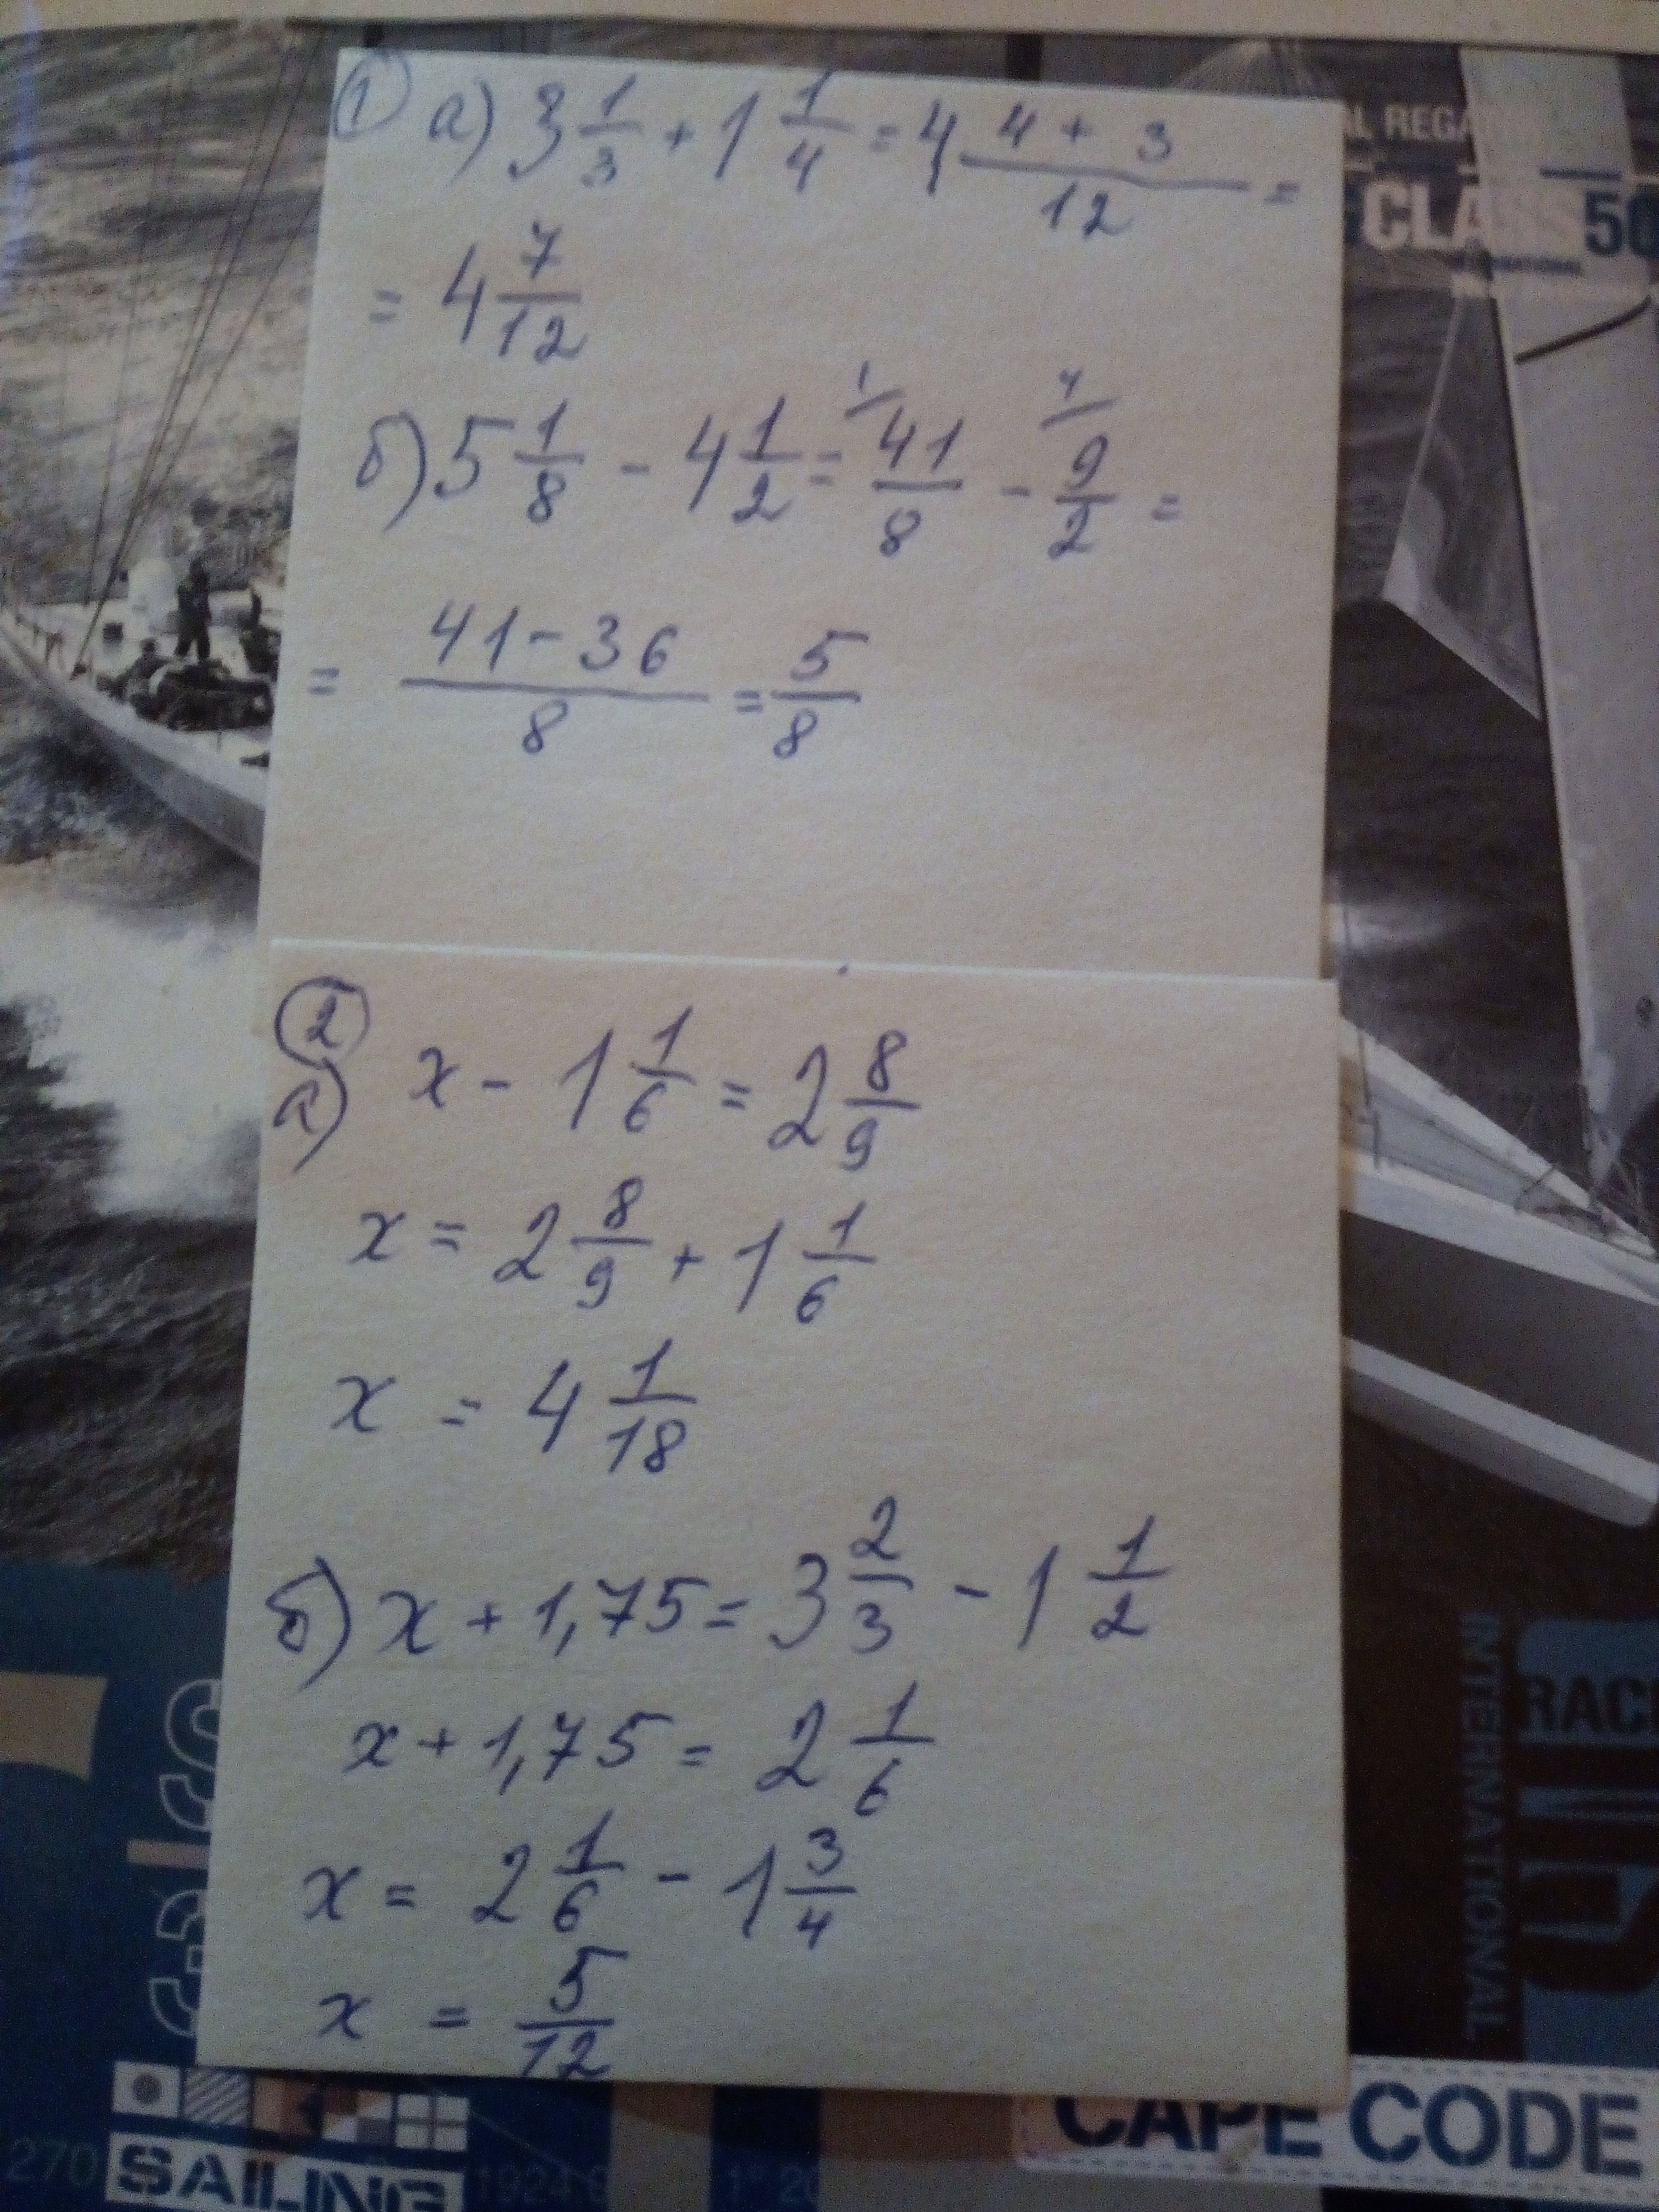 1 а) 3 1/3 + 1 1/4 = 4 (4 + 3)/12 =
= 4 7/12
б) 5 1/8 - 4 1/2 = 1/ 41/8 - 4/ 9/2 =
= (41 - 36)/8 = 5/8
2
а) x - 1 1/6 = 2 8/9
x = 2 8/9 + 1 1/6
x = 4 1/18
б) x + 1,75 = 3 2/3 - 1 1/2
x + 1,75 = 2 1/6
x = 2 1/6 - 1 3/4
x = 5/12
CLASS 50
INTERNATIONAL
CAPE CODE
270
SAILING